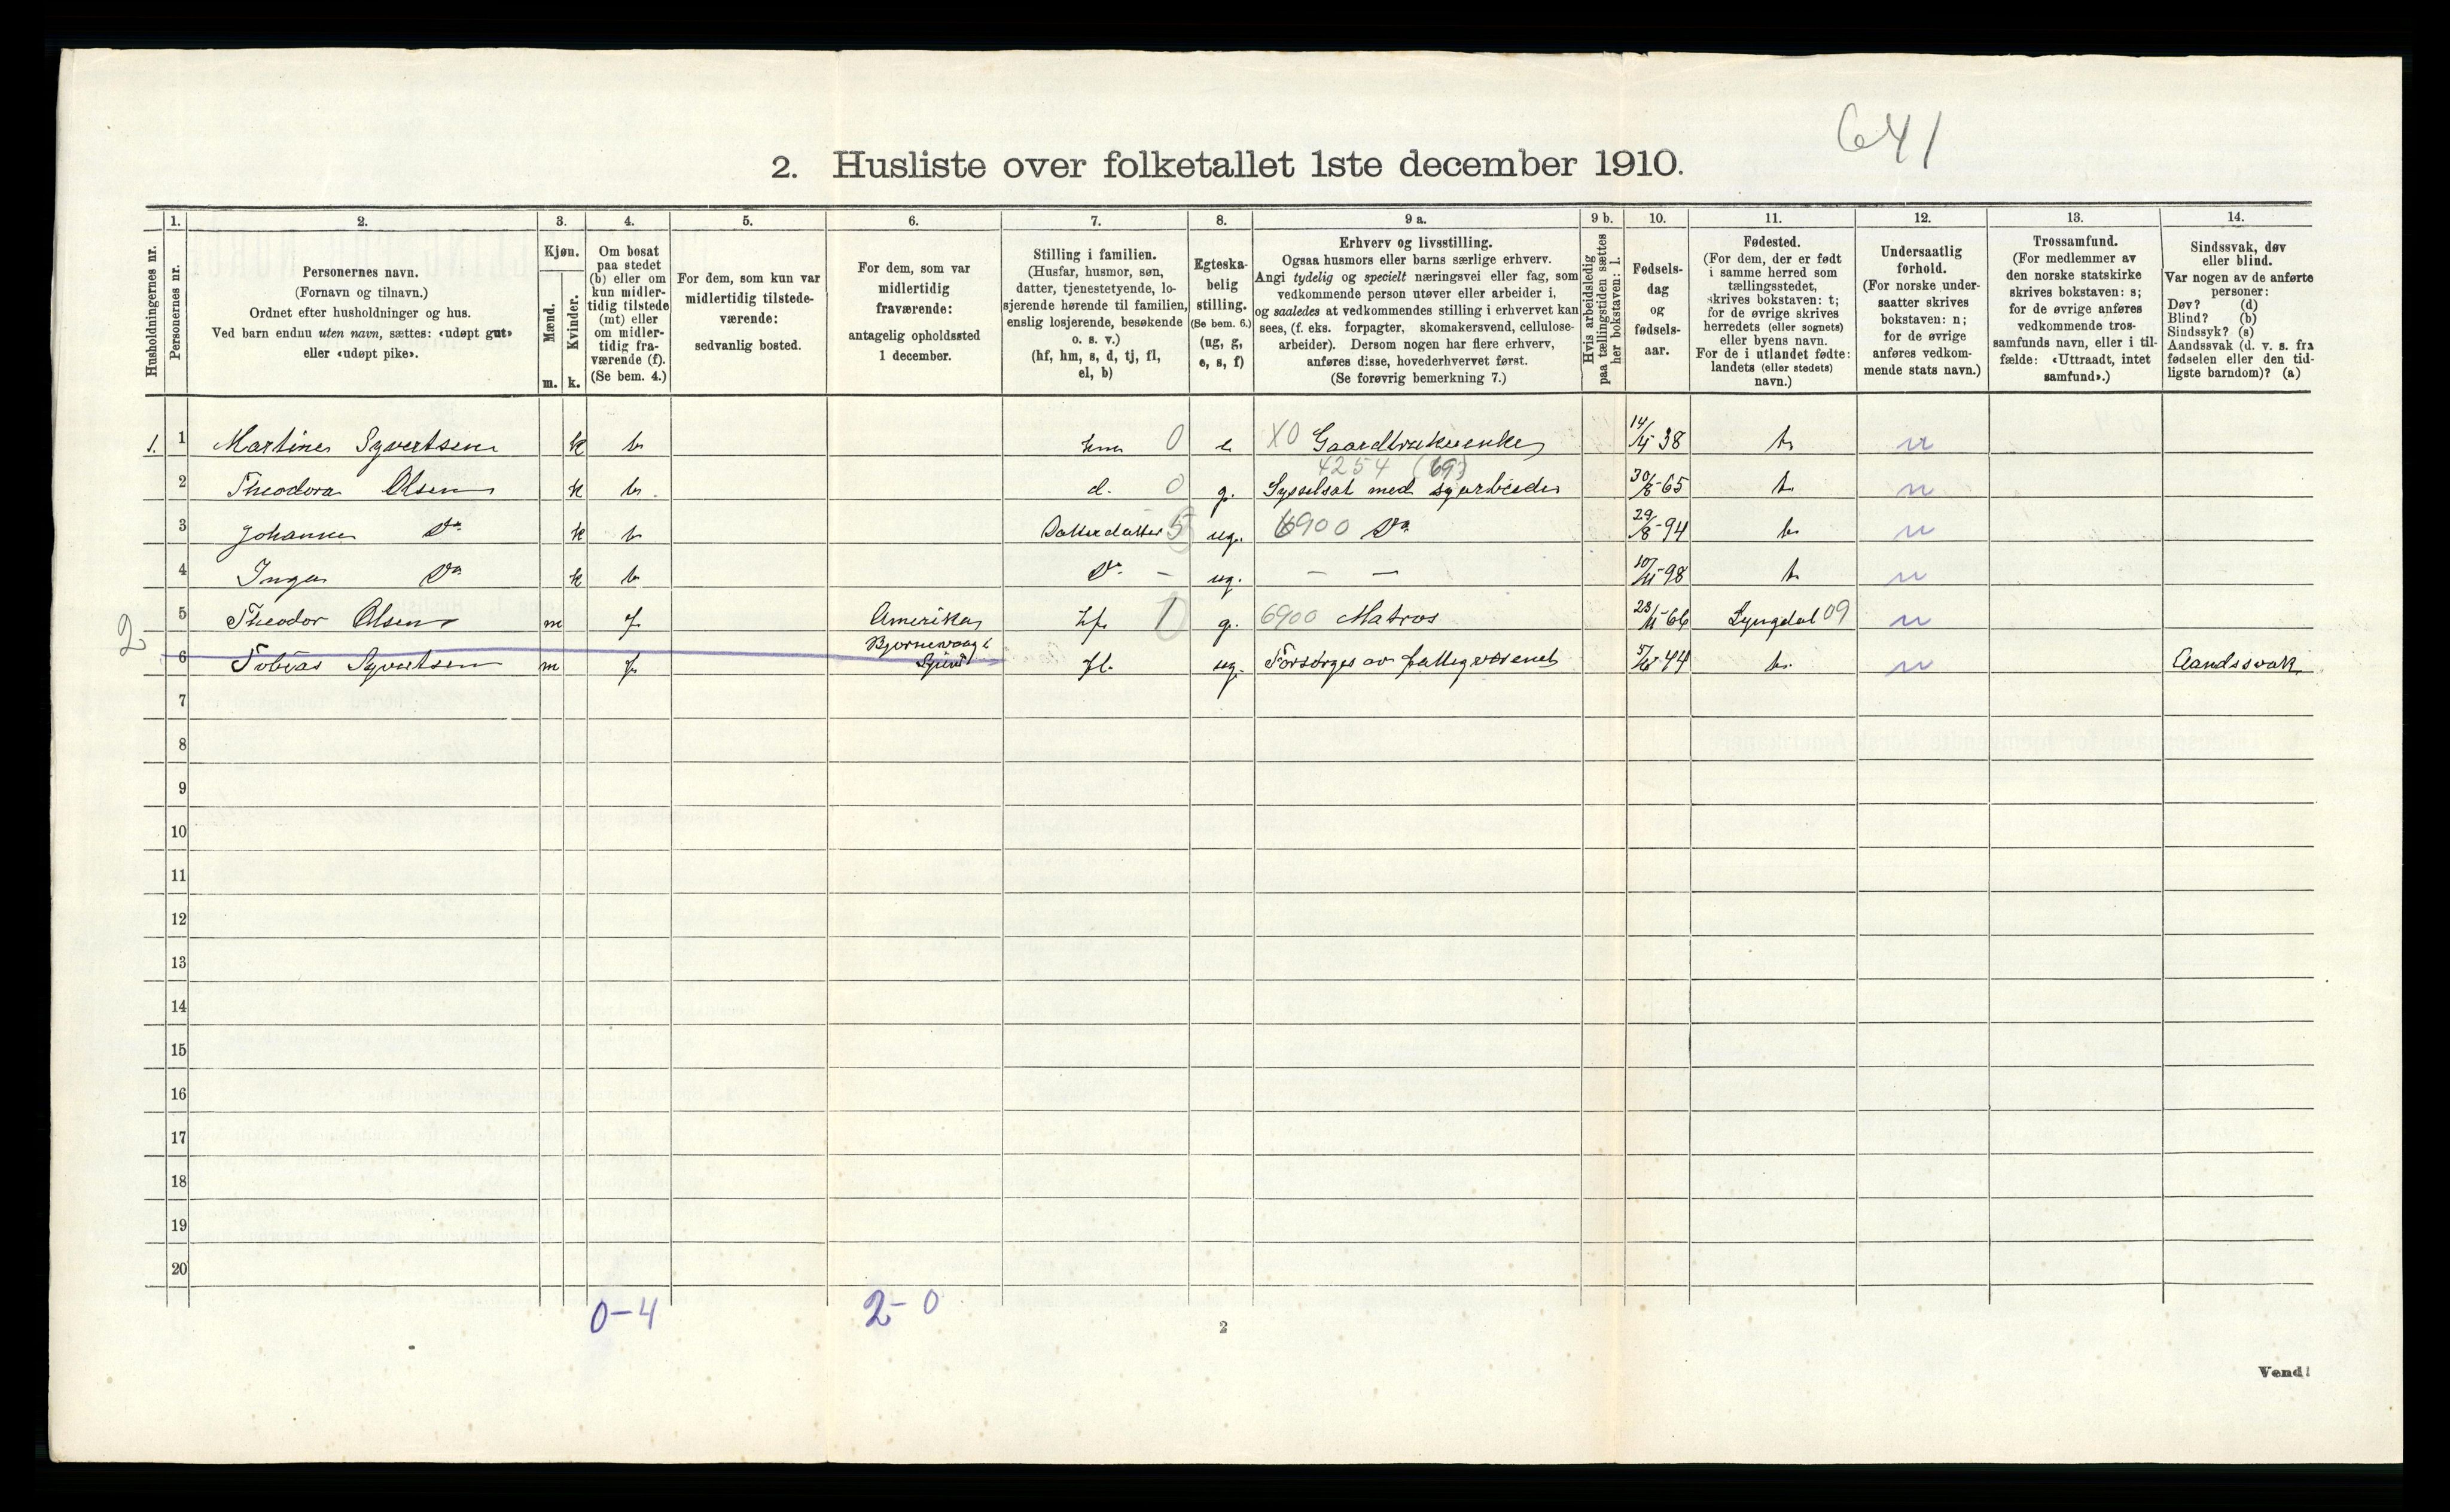 641
2. Husliste over folketallet 1ste december 1910.
Husholdningernes nr.
1.
Personernes nr.
2.
Personernes navn.
(Fornavn og tilnavn.)
Ordnet efter husholdninger og hus.
Ved barn endnu uten navn, sættes: «udøpt gut»
eller «udøpt pike».
3.
Kjøn.
Mænd.
Kvinder.
m. k.
4.
Om bosat
paa stedet
(b) eller om
kun midler-
tidig tilstede
(mt) eller
om midler-
tidig fra-
værende (f).
(Se bem. 4.)
5.
For dem, som kun var
midlertidig tilstede-
værende:
sedvanlig bosted.
6.
For dem, som var
midlertidig
fraværende:
antagelig opholdssted
1 december.
7.
Stilling i familien.
(Husfar, husmor, søn,
datter, tjenestetyende, lo-
sjerende hørende til familien,
enslig losjerende, besøkende
o. s. v.)
(hf, hm, s, d, tj, fl,
el, b)
8.
Egteska-
belig
stilling.
(Se bem. 6.)
(ug, g,
e, s, f)
9 a.
Erhverv og livsstilling.
Ogsaa husmors eller barns særlige erhverv.
Angi tydelig og specielt næringsvei eller fag, som
vedkommende person utøver eller arbeider i,
og saaledes at vedkommendes stilling i erhvervet kan
sees, (f. eks. forpagter, skomakersvend, cellulose-
arbeider). Dersom nogen har flere erhverv,
anføres disse, hovederhvervet først.
(Se forøvrig bemerkning 7.)
9 b.
Hvis arbeidsledig
paa tællingstiden sættes
her bokstaven: l.
10.
Fødsels-
dag
og
fødsels-
aar.
11.
Fødested.
(For dem, der er født
i samme herred som
tællingsstedet,
skrives bokstaven: t;
for de øvrige skrives
herredets (eller sognets)
eller byens navn.
For de i utlandet fødte:
landets (eller stedets)
navn.)
12.
Undersaatlig
forhold.
(For norske under-
saatter skrives
bokstaven: n;
for de øvrige
anføres vedkom-
mende stats navn.)
13.
Trossamfund.
(For medlemmer av
den norske statskirke
skrives bokstaven: s;
for de øvrige anføres
vedkommende tros-
samfunds navn, eller i til-
fælde: «Uttraadt, intet
samfund».)
14.
Sindssvak, døv
eller blind.
Var nogen av de anførte
personer:
Døv? (d)
Blind? (b)
Sindssyk? (s)
Aandssvak (d. v. s. fra
fødselen eller den tid-
ligste barndom)? (a)
1. 1 Martine Syvertsen k b hm 0 e X0 Gaardbrukerenke 38 t n
4254 (69)
2 Theodora Olsen k b. d. 0 g. Sysselsat med syarbeide 30/8-65 t. n
3 Johanne Do k b Datterdatter 5 ug. 6900 Do 29/8-94 t. n
4 Inga Do k b Do - ug. — — 10/11-98 t. n
5 Theodor Olsen m f. Amerika hf. 1 g. 6900 Matros 23/11-66 Lyngdal 09 n
2
6 Tobias Syvertsen m f. Bjørnevaag i
fl. ug. Forsørges av fattigvæsenet 44 t. n Aandssvak
7
8
9
10
11
12
13
14
15
16
17
18
19
20
0-4 2-0
2
Vend!